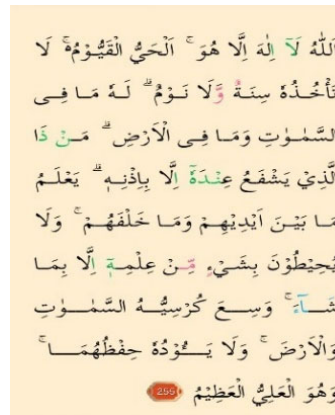 اَللّٰهُ لَاۤ اِلٰهَ اِلَّا هُوَ ۚ اَلْحَیُّ الْقَیُّوْمُ ۚ۬ لَا
تَاْخُذُهٗ سِنَةٌ وَّلَا نَوْمٌ ؕ لَهٗ مَا فِی
السَّمٰوٰتِ وَمَا فِی الْاَرْضِ ؕ مَنْ ذَا
الَّذِیْ یَشْفَعُ عِنْدَهٗۤ اِلَّا بِاِذْنِهٖ ؕ یَعْلَمُ
مَا بَیْنَ اَیْدِیْهِمْ وَمَا خَلْفَهُمْ ۚ وَلَا
یُحِیْطُوْنَ بِشَیْءٍ مِّنْ عِلْمِهٖۤ اِلَّا بِمَا
شَآءَ ۚ وَسِعَ كُرْسِیُّهُ السَّمٰوٰتِ
وَالْاَرْضَ ۚ وَلَا یَـُٔوْدُهٗ حِفْظُهُمَا ۚ
وَهُوَ الْعَلِیُّ الْعَظِیْمُ 255